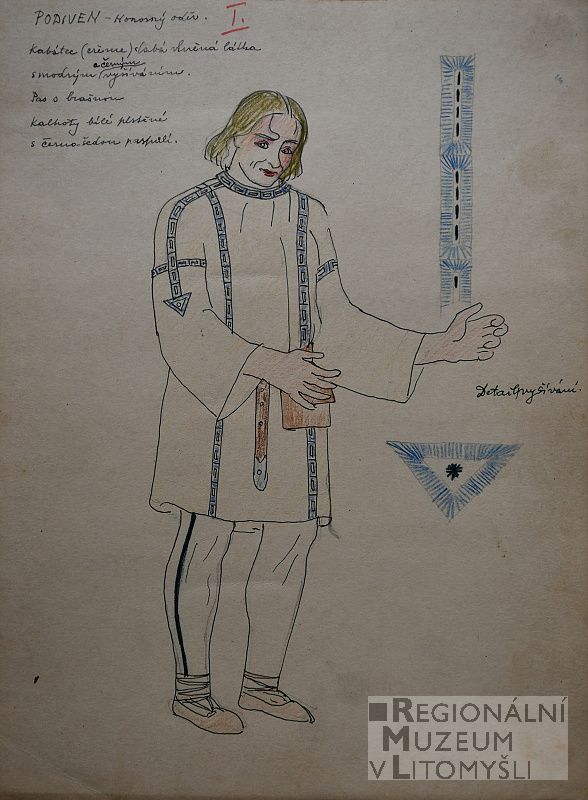 PODIVEN - Honosný oděv. I.
Kabátec (crème) slabá vlněná látka
a černým
s modrým vyšíváním.
Pas s brašnou
Kalhoty bílé plstěné
s černo šedou paspulí.
Detail vyšívání.
REGIONÁLNÍ
MUZEUM
V LITOMYŠLI